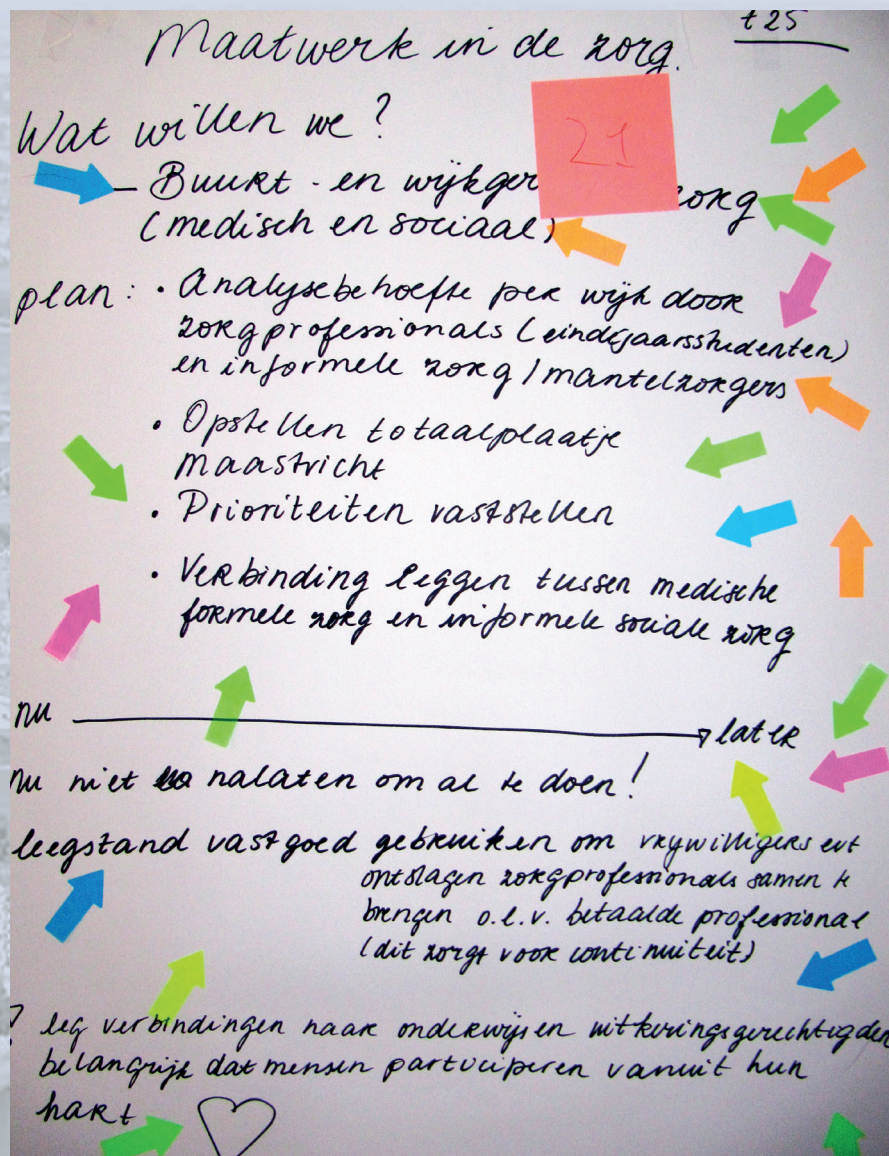 t25
Maatwerk in de zorg.
21
Wat willen we?
- Buurt- en wijkger zorg
(medisch en sociaal)
plan: • Analysebehoefte per wijk door
zorgprofessionals (eindejaarsstudenten)
en informele zorg/mantelzorgers
• Opstellen totaalplaatje
Maastricht
• Prioriteiten vaststellen
• Verbinding leggen tussen medische
formele zorg en informele sociale zorg
nu later
nu niet nalaten om al te doen!
leegstand vastgoed gebruiken om vrijwilligers evt
ontslagen zorgprofessionals samen te
brengen o.l.v. betaalde professional
(dit zorgt voor continuiteit)
leg verbindingen naar onderwijs en uitkeringsgerechtigden
belangrijk dat mensen participeren vanuit hun
hart